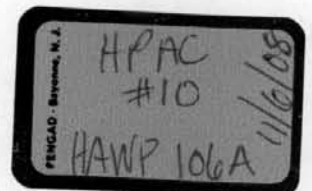 PENGAD · Bayonne, N. J.
HPAC
#10
HAWP 106A
11/6/08